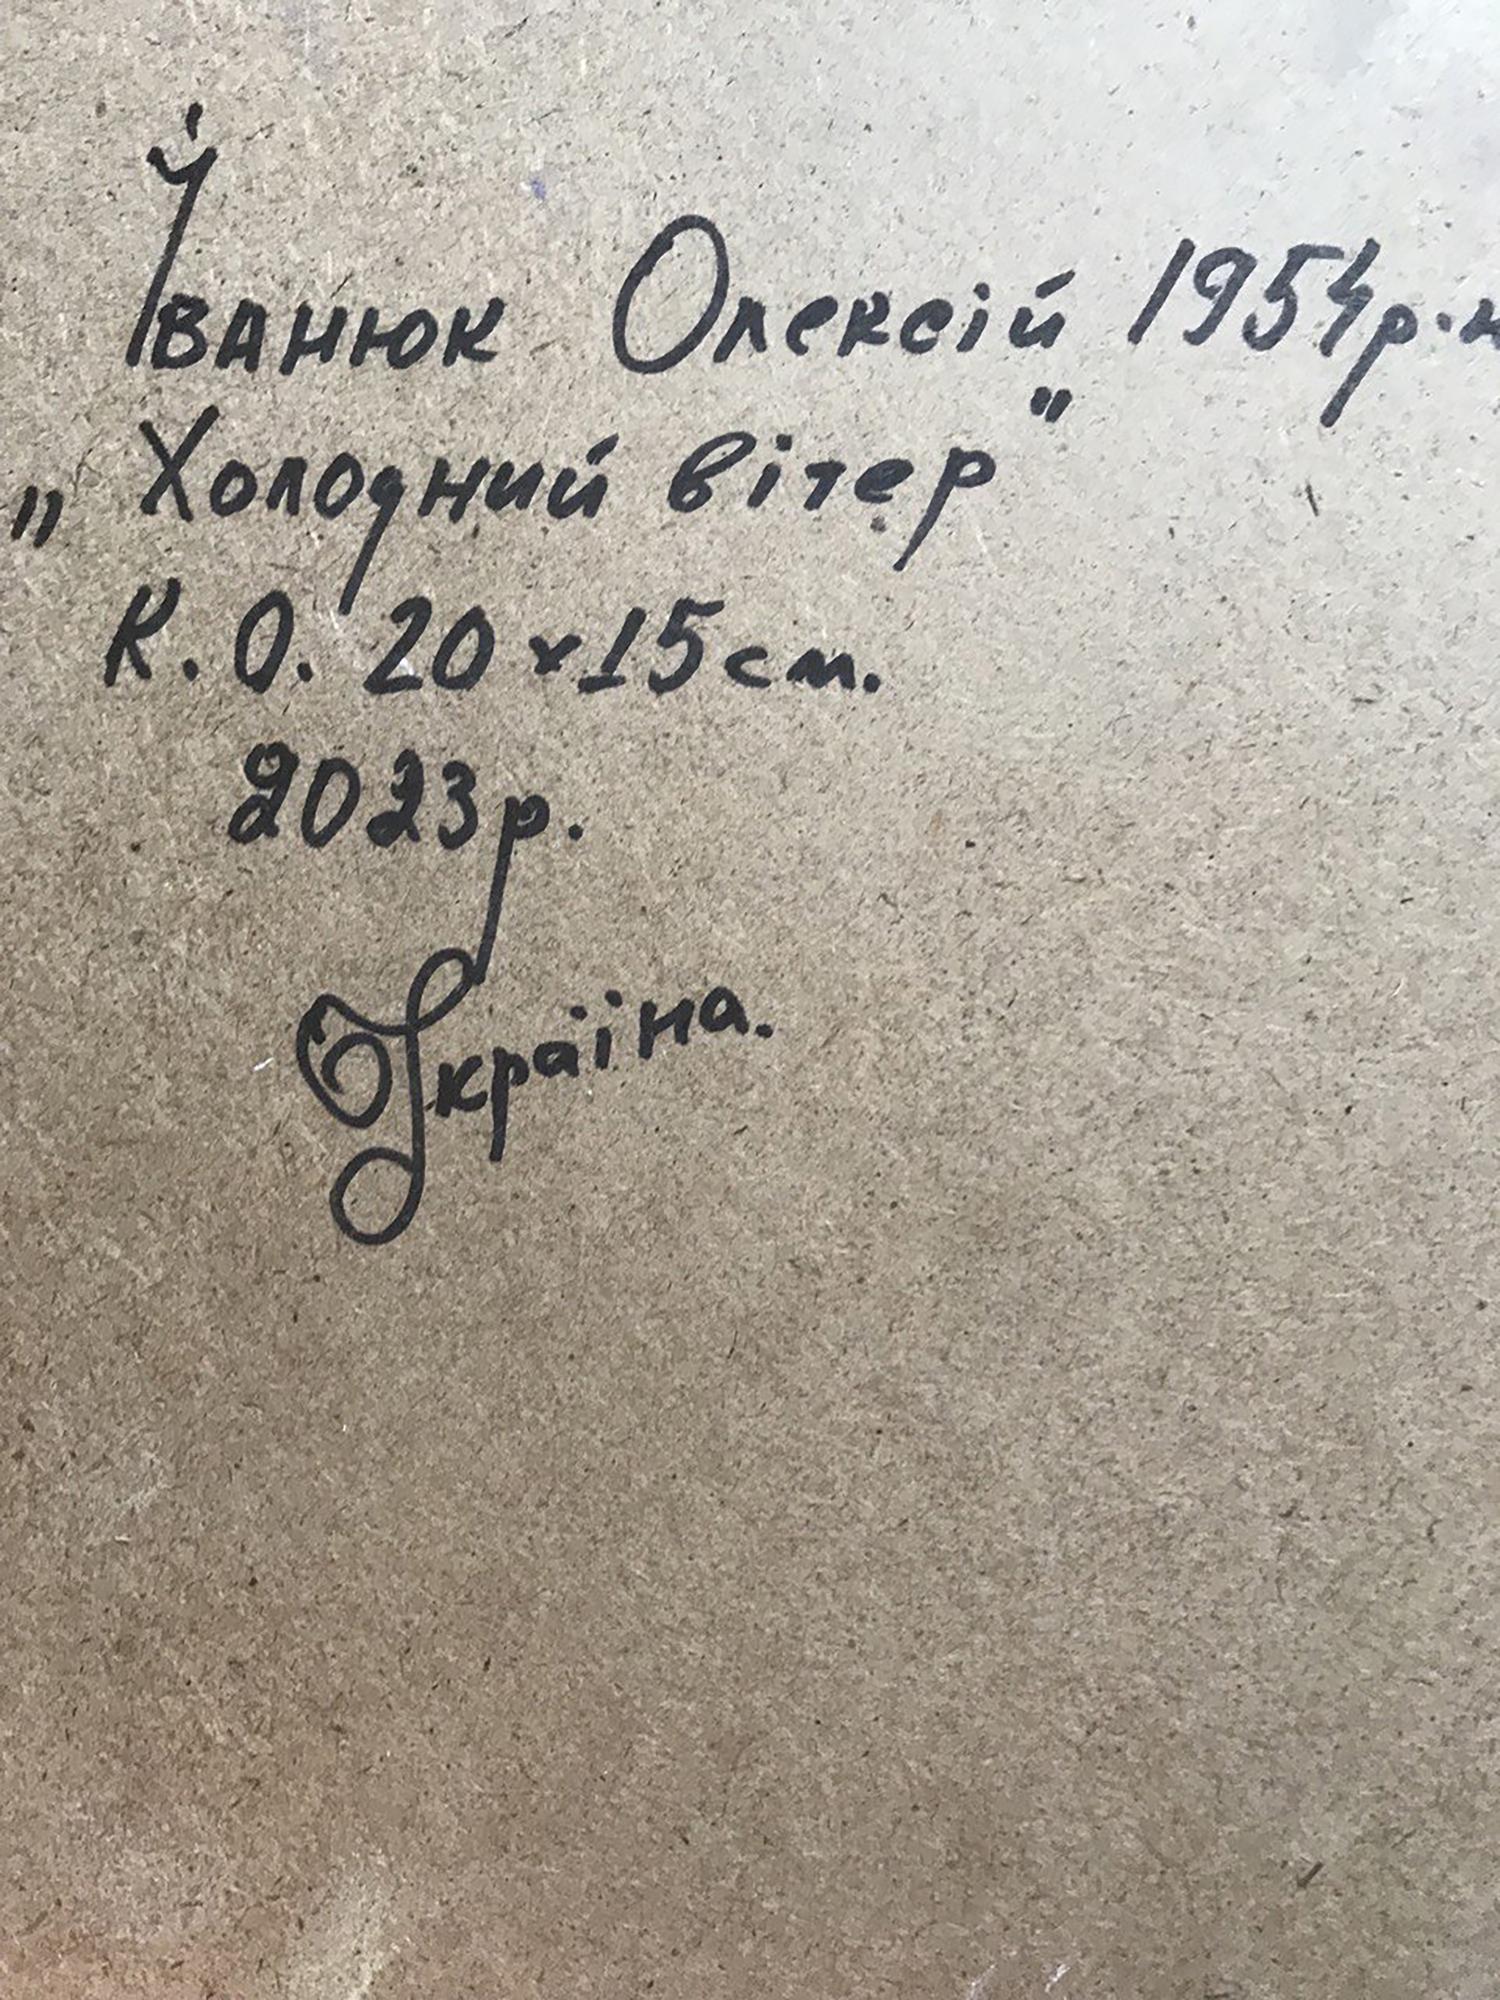 Іванюк Олексій 1954р.н
„Холодний вітер"
К.О. 20х15см.
2023р.
Україна.